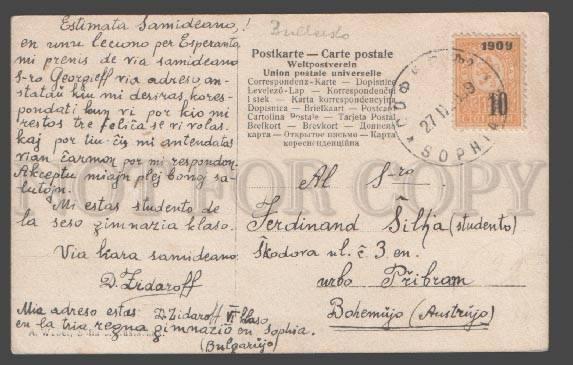 Estimata Samideano,!
en unu leciono per Esperanta
mi prenis de via samideano
S-ro Georgieff via adreso an-
statau kiu mi deziras kores-
pondati kun vi por kio mi
restos tre feliĉa se vi volas.
kaj por tiu-ĉi mi antendatas
vian ĉarmon por mi respondon.
Akceptu miajn plej bong sa-
lutojn.
Mi estas studento de
la seso gimnazia klaso.
Via kara samideano
D. Zidaroff
Mia adreso estas D. Zidaroff VI klaso
en la tria regna gimnazio en Sophia.
(Bulgarujo)
Postkarte — Carte postale
Weltpostverein
Union postale universelle
Correspondenz-Karte — Dopisnice
Levelező-Lap — Korrespondenční
lístek — Karta korrespondencyjna
Dopisnica — Briefkaart — Postcard
Cartolina Postale — Tarjeta Postal
Brefkort — Brevkort — Дописна
карта — Открытое письмо — Карта
кореспонденційна
1909
10
СТОТИНКИ
СОФИЯ
SOPHIA
Al S-ro
Ferdinand Ŝilha (studento)
Ŝkodova ul. ĉ 3 en.
urbo Přibram
Bohemujo (Austrujo)
NOT FOR COPY